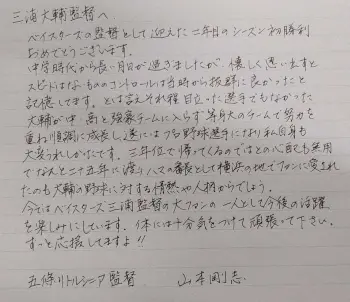 三浦大輔監督へ
ベイスターズの監督として迎えた二年目のシーズン初勝利
おめでとうございます。
中学時代から長い月日が過ぎましたが、懐しく思い出すと
スピードはないもののコントロールは当時から抜群に良かったと
記憶してます。とは言えそれ程目立った選手でもなかった
大輔が中・高と強豪チームに入らず等身大のチームで努力を
重ね順調に成長し遂にはプロ野球選手になり私自身も
大変うれしかったです。三年位で帰ってくるのではとの心配も無用
でなんと二十五年に渡りハマの番長として横浜の地でファンに愛され
たのも大輔の野球に対する情熱や人柄からでしょう。
今ではベイスターズ三浦監督の大ファンの一人として今後の活躍
を楽しみにしています。体には十分気をつけて頑張って下さい。
ずっと応援してますよ!!
五條リトルシニア監督 山本剛志